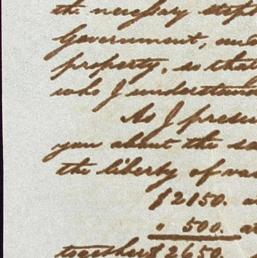 the necessary steps
Government, and
property, so that
who I understand
As I presume
you about the sa
the liberty of
$2150. a
" 500. at
together $2650.